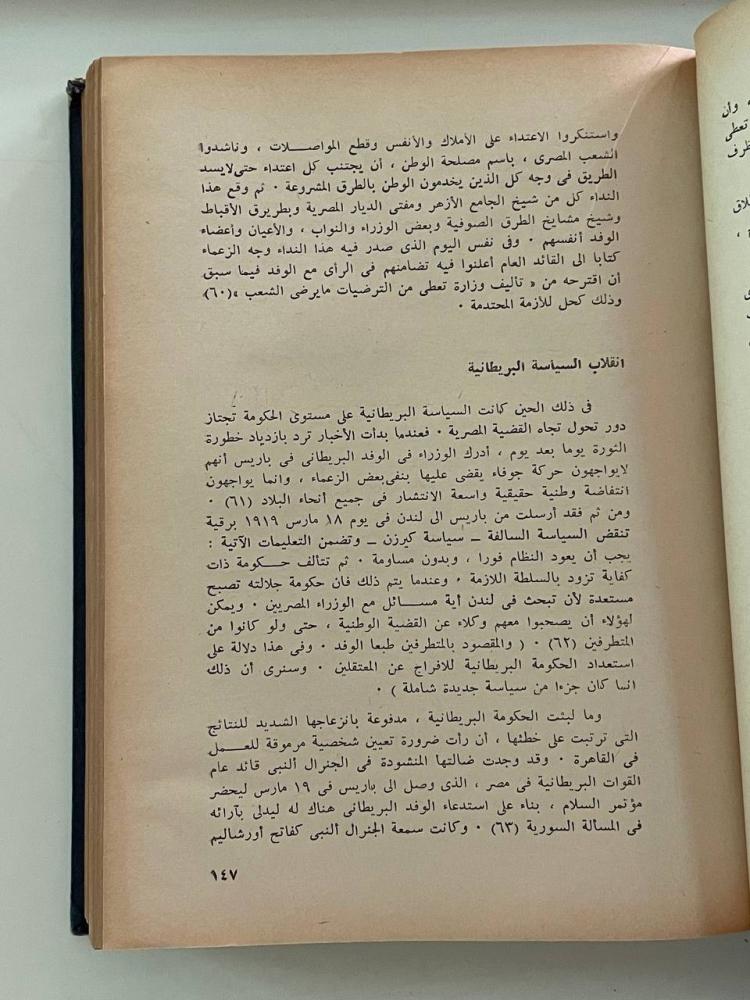 واستنكروا الاعتداء على الأملاك والأنفس وقطع المواصلات ، وناشدوا
الشعب المصرى ، باسم مصلحة الوطن ، أن يجتنب كل اعتداء حتى لايسد
الطريق فى وجه كل الذين يخدمون الوطن بالطرق المشروعة ٠ ثم وقع هذا
النداء كل من شيخ الجامع الأزهر ومفتى الديار المصرية وبطريرق الأقباط
وشيخ مشايخ الطرق الصوفية وبعض الوزراء والنواب ، والأعيان وأعضاء
الوفد أنفسهم ٠ وفى نفس اليوم الذى صدر فيه هذا النداء وجه الزعماء
كتابا الى القائد العام أعلنوا فيه تضامنهم فى الرأى مع الوفد فيما سبق
أن اقترحه من « تأليف وزارة تعطى من الترضيات مايرضى الشعب »(٦٠)
وذلك كحل للأزمة المحتدمة ٠
انقلاب السياسة البريطانية
فى ذلك الحين كانت السياسة البريطانية على مستوى الحكومة تجتاز
دور تحول تجاه القضية المصرية ٠ فعندما بدأت الأخبار ترد بازدياد خطورة
الثورة يوما بعد يوم ، أدرك الوزراء فى الوفد البريطانى فى باريس أنهم
لايواجهون حركة جوفاء يقضى عليها بنفى بعض الزعماء ، وانما يواجهون
انتفاضة وطنية حقيقية واسعة الانتشار فى جميع أنحاء البلاد (٦١) ٠
ومن ثم فقد أرسلت من باريس الى لندن فى يوم ١٨ مارس ١٩١٩ برقية
تنقض السياسة السالفة ــ سياسة كيرزن ــ وتضمن التعليمات الآتية :
يجب أن يعود النظام فورا ، وبدون مساومة ٠ ثم تتألف حكومة ذات
كفاية تزود بالسلطة اللازمة ٠ وعندما يتم ذلك فان حكومة جلالته تصبح
مستعدة لأن تبحث فى لندن أية مسائل مع الوزراء المصريين ٠ ويمكن
لهؤلاء أن يصحبوا معهم وكلاء عن القضية الوطنية ، حتى ولو كانوا من
المتطرفين (٦٢) ٠ ( والمقصود بالمتطرفين طبعا الوفد ٠ وفى هذا دلالة على
استعداد الحكومة البريطانية للافراج عن المعتقلين ٠ وسنرى أن ذلك
انما كان جزءا من سياسة جديدة شاملة ) ٠
وما لبثت الحكومة البريطانية ، مدفوعة بانزعاجها الشديد للنتائج
التى ترتبت على خطئها ، أن رأت ضرورة تعيين شخصية مرموقة للعمل
فى القاهرة ٠ وقد وجدت ضالتها المنشودة فى الجنرال ألنبى قائد عام
القوات البريطانية فى مصر ، الذى وصل الى باريس فى ١٩ مارس ليحضر
مؤتمر السلام ، بناء على استدعاء الوفد البريطانى هناك له ليدلى بآرائه
فى المسألة السورية (٦٣) ٠ وكانت سمعة الجنرال ألنبى كفاتح أورشاليم
١٤٧